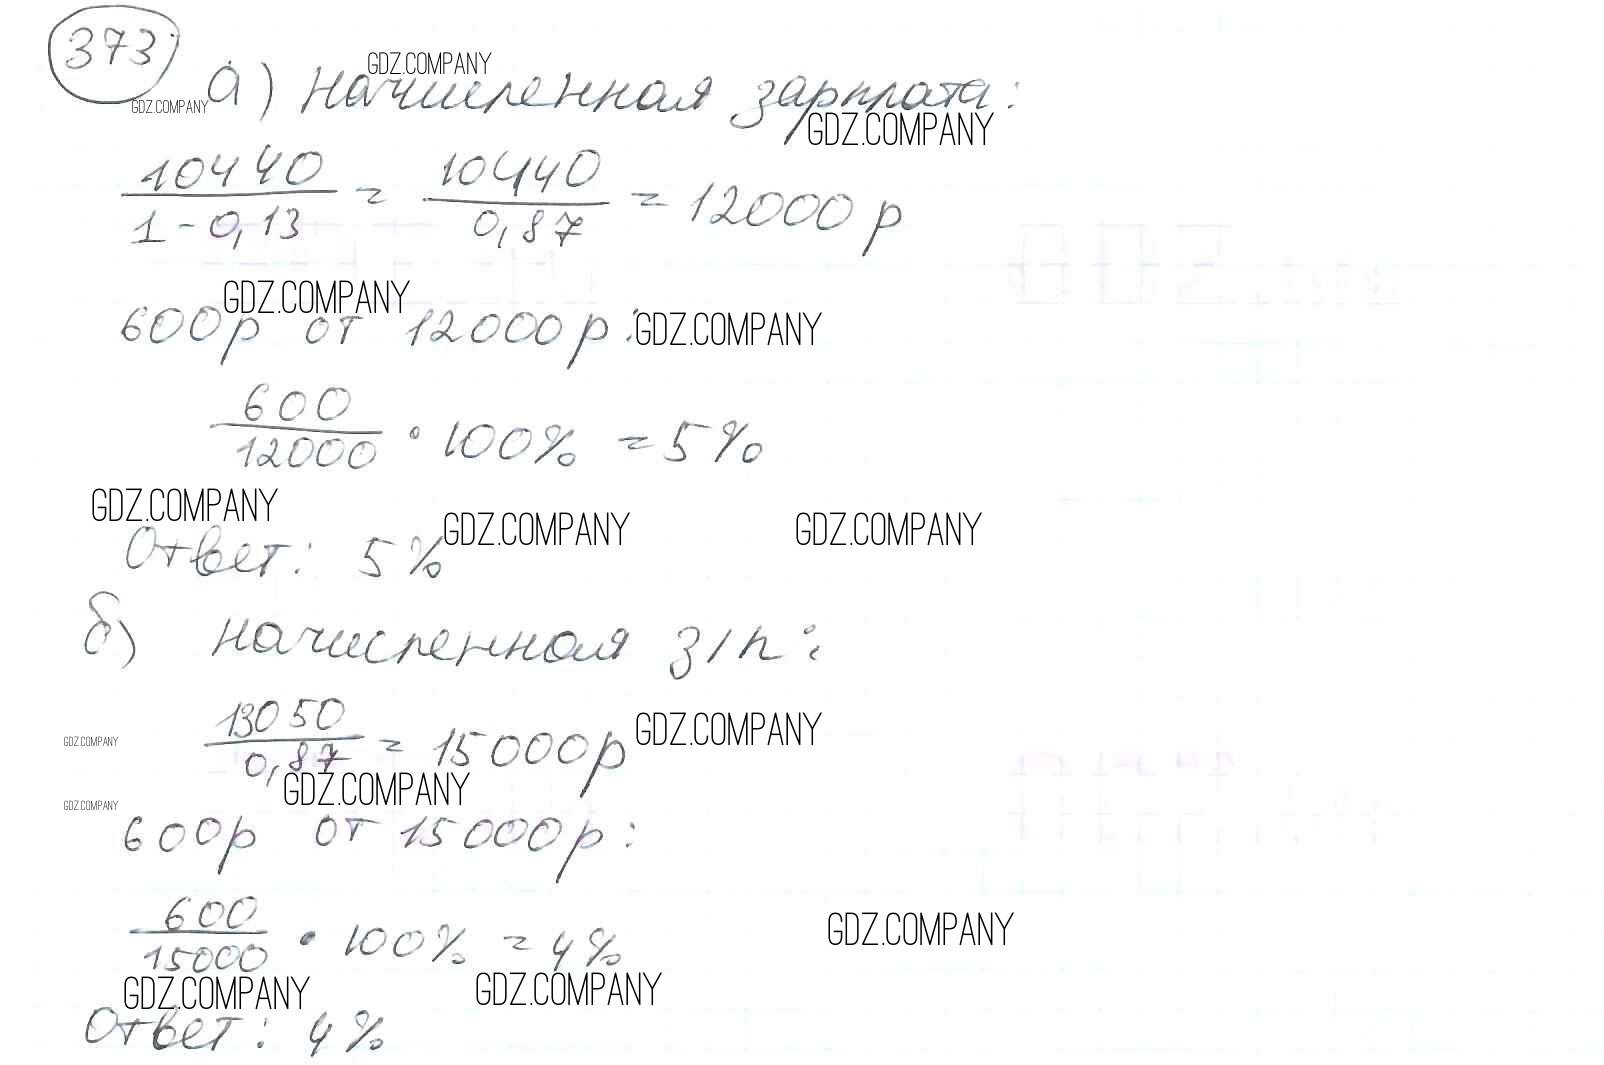 373
GDZ.COMPANY
GDZ.COMPANY
а) Начисленная зарплата:
GDZ.COMPANY
10440 / 1-0,13 = 10440 / 0,87 = 12000 р
GDZ.COMPANY
600р от 12000р:
GDZ.COMPANY
600 / 12000 · 100% = 5%
GDZ.COMPANY
GDZ.COMPANY
GDZ.COMPANY
Ответ: 5%
б) начисленная з/п:
13050 / 0,87 = 15000р
GDZ.COMPANY
GDZ.COMPANY
GDZ.COMPANY
GDZ.COMPANY
600р от 15000р:
600 / 15000 · 100% = 4%
GDZ.COMPANY
GDZ.COMPANY
GDZ.COMPANY
Ответ: 4%